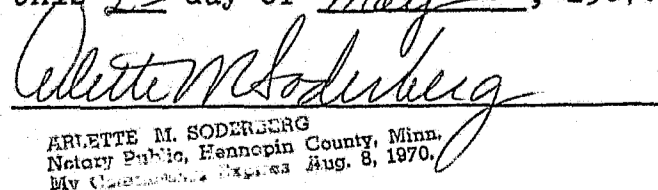 this day of May
Arlette M Soderberg
ARLETTE M. SODERBERG
Notary Public, Hennopin County, Minn.
My Commission Expires Aug. 8, 1970.